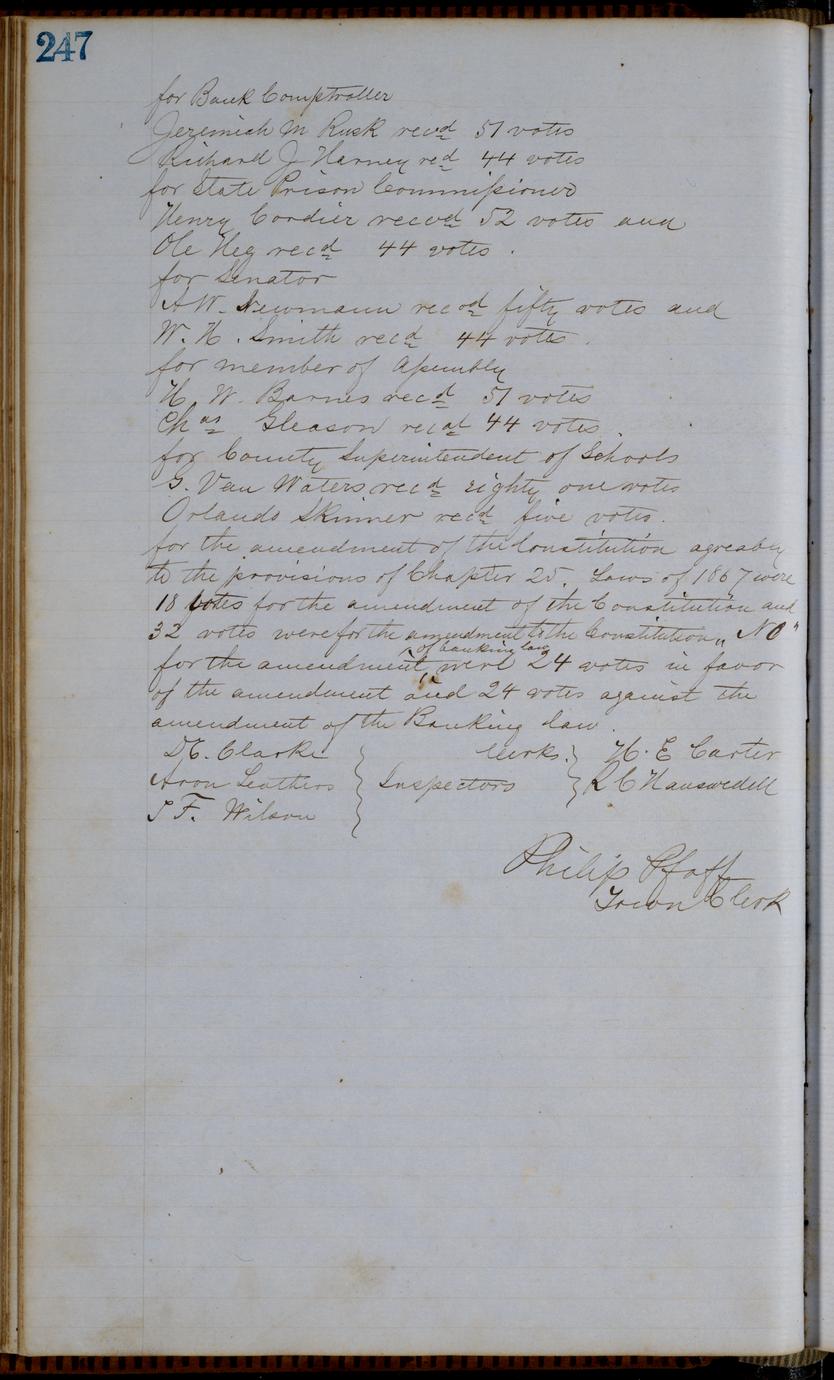 247
for Bank Comptroller
Jeremiah M Rusk recvd 51 votes
Richard J Harney red 44 votes
for State Prison Commissioner
Henry Cordier recvd 52 votes and
Ole Heg recd 44 votes.
for Senator
A W. Newmann recvd fifty votes and
W. H. Smith recd 44 votes.
for member of Assembly
H. W. Barnes recd 51 votes
Chas Gleason recd 44 votes.
for County Superintendent of Schools
G. Van Waters recd Eighty one votes
Orlando Skinner recd five votes.
for the amendment of the Constitution agreably
to the provisions of Chapter 25. Laws of 1867 were
18 votes for the amendment of the Constitution and
32 votes were for the amendment to the Constitution „ NO "
of banking law
for the amendment were 24 votes in favor
of the amendment and 24 votes against the
amendment of the Banking law.
D C. Clarke Clerks. H. E Carter
Aron Leathers Inspectors R C Hanswedell
S F. Wilson
Philip Pfaff
Town Clerk